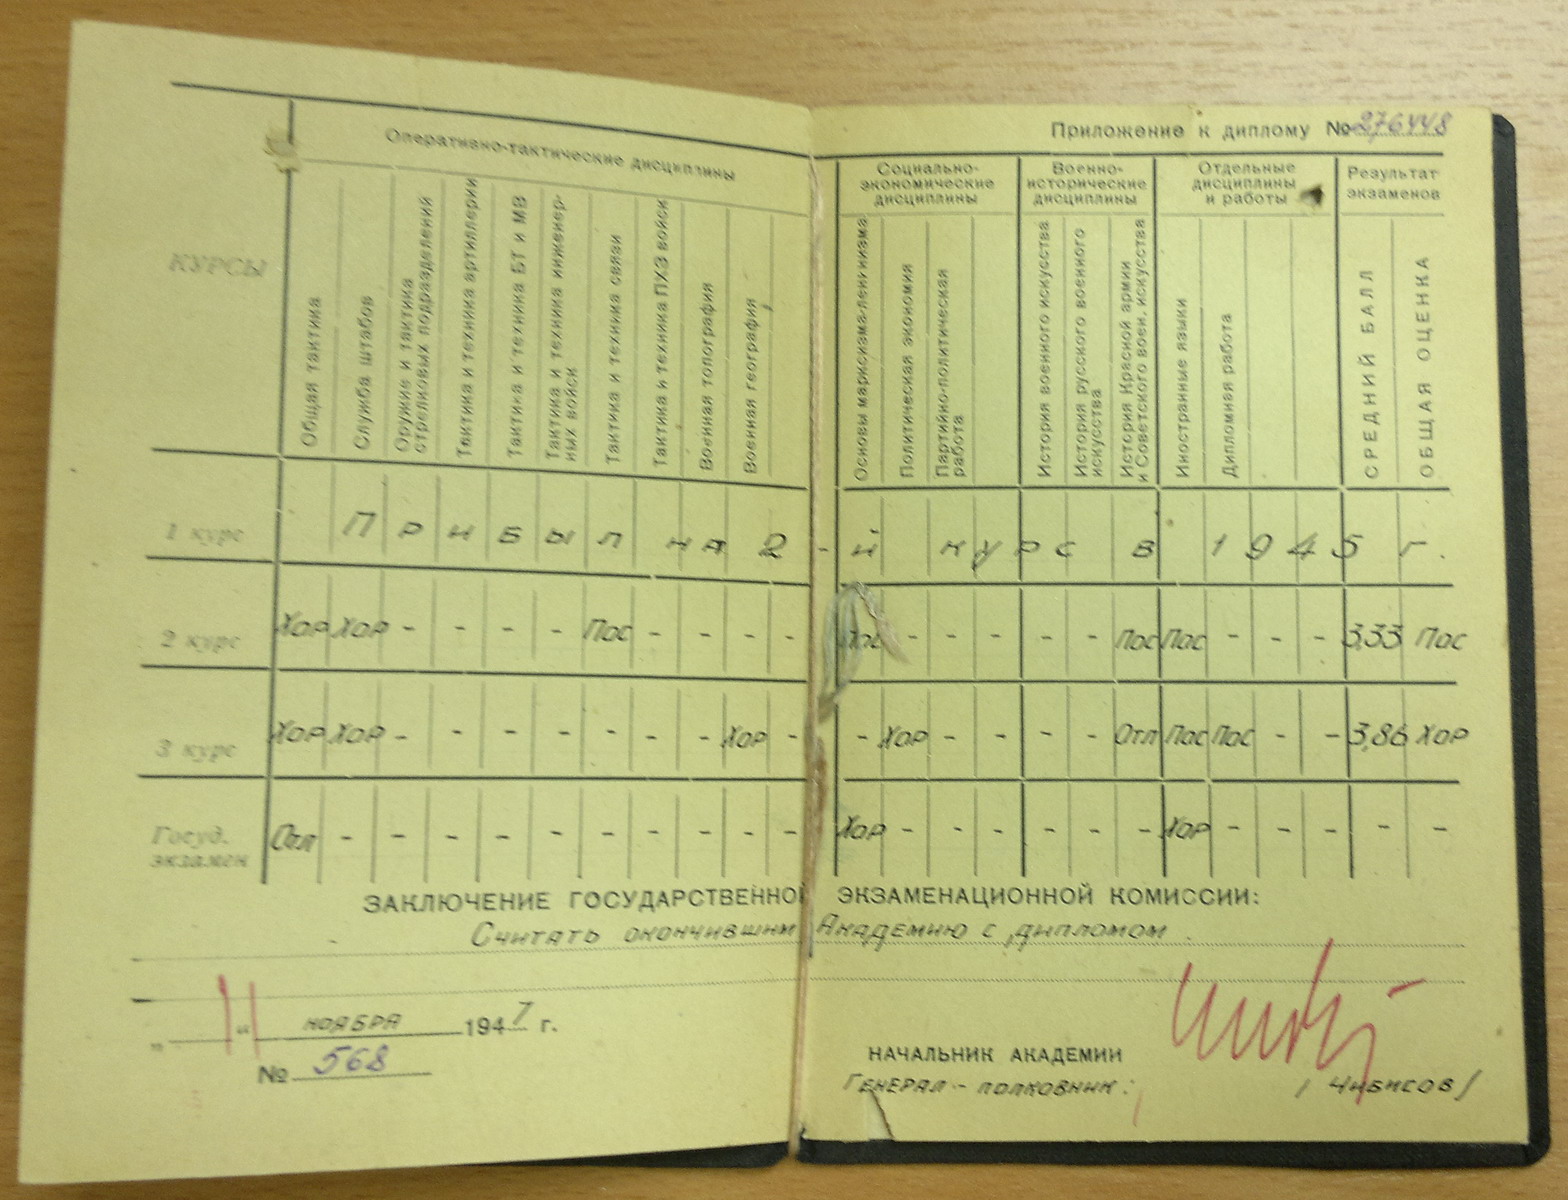 Приложение к диплому № 276448
КУРСЫ
Оперативно-тактические дисциплины
Социально-экономические дисциплины
Военно-исторические дисциплины
Отдельные дисциплины и работы
Результат экзаменов
Общая тактика
Служба штабов
Оружие и тактика
стрелковых подразделений
Тактика и техника артиллерии
Тактика и техника БТ и МВ
Тактика и техника инженер-
ных войск
Тактика и техника связи
Тактика и техника ПХЗ войск
Военная топография
Военная география
Основы марксизма-ленинизма
Политическая экономия
Партийно-политическая
работа
История военного искусства
История русского военного
искусства
История Красной армии
и Советского воен. искусства
Иностранные языки
Дипломная работа
СРЕДНИЙ БАЛЛ
ОБЩАЯ ОЦЕНКА
1 курс Прибыл на 2-й курс в 1945 г.
2 курс Хор Хор - - - - Пос - - - - - - - - - Пос Пос - - - 3,33 Пос
3 курс Хор Хор - - - - - - - Хор - - Хор - - - - Отл Пос Пос - - 3,86 Хор
Госуд. экзамен Отл - - - - - - - - - - Хор - - - - - - Хор - - - - -
ЗАКЛЮЧЕНИЕ ГОСУДАРСТВЕННОЙ ЭКЗАМЕНАЦИОННОЙ КОМИССИИ:
Считать окончившим Академию с дипломом.
„11“ ноября 1947 г.
№ 568
НАЧАЛЬНИК АКАДЕМИИ
Генерал-полковник: /Чибисов/